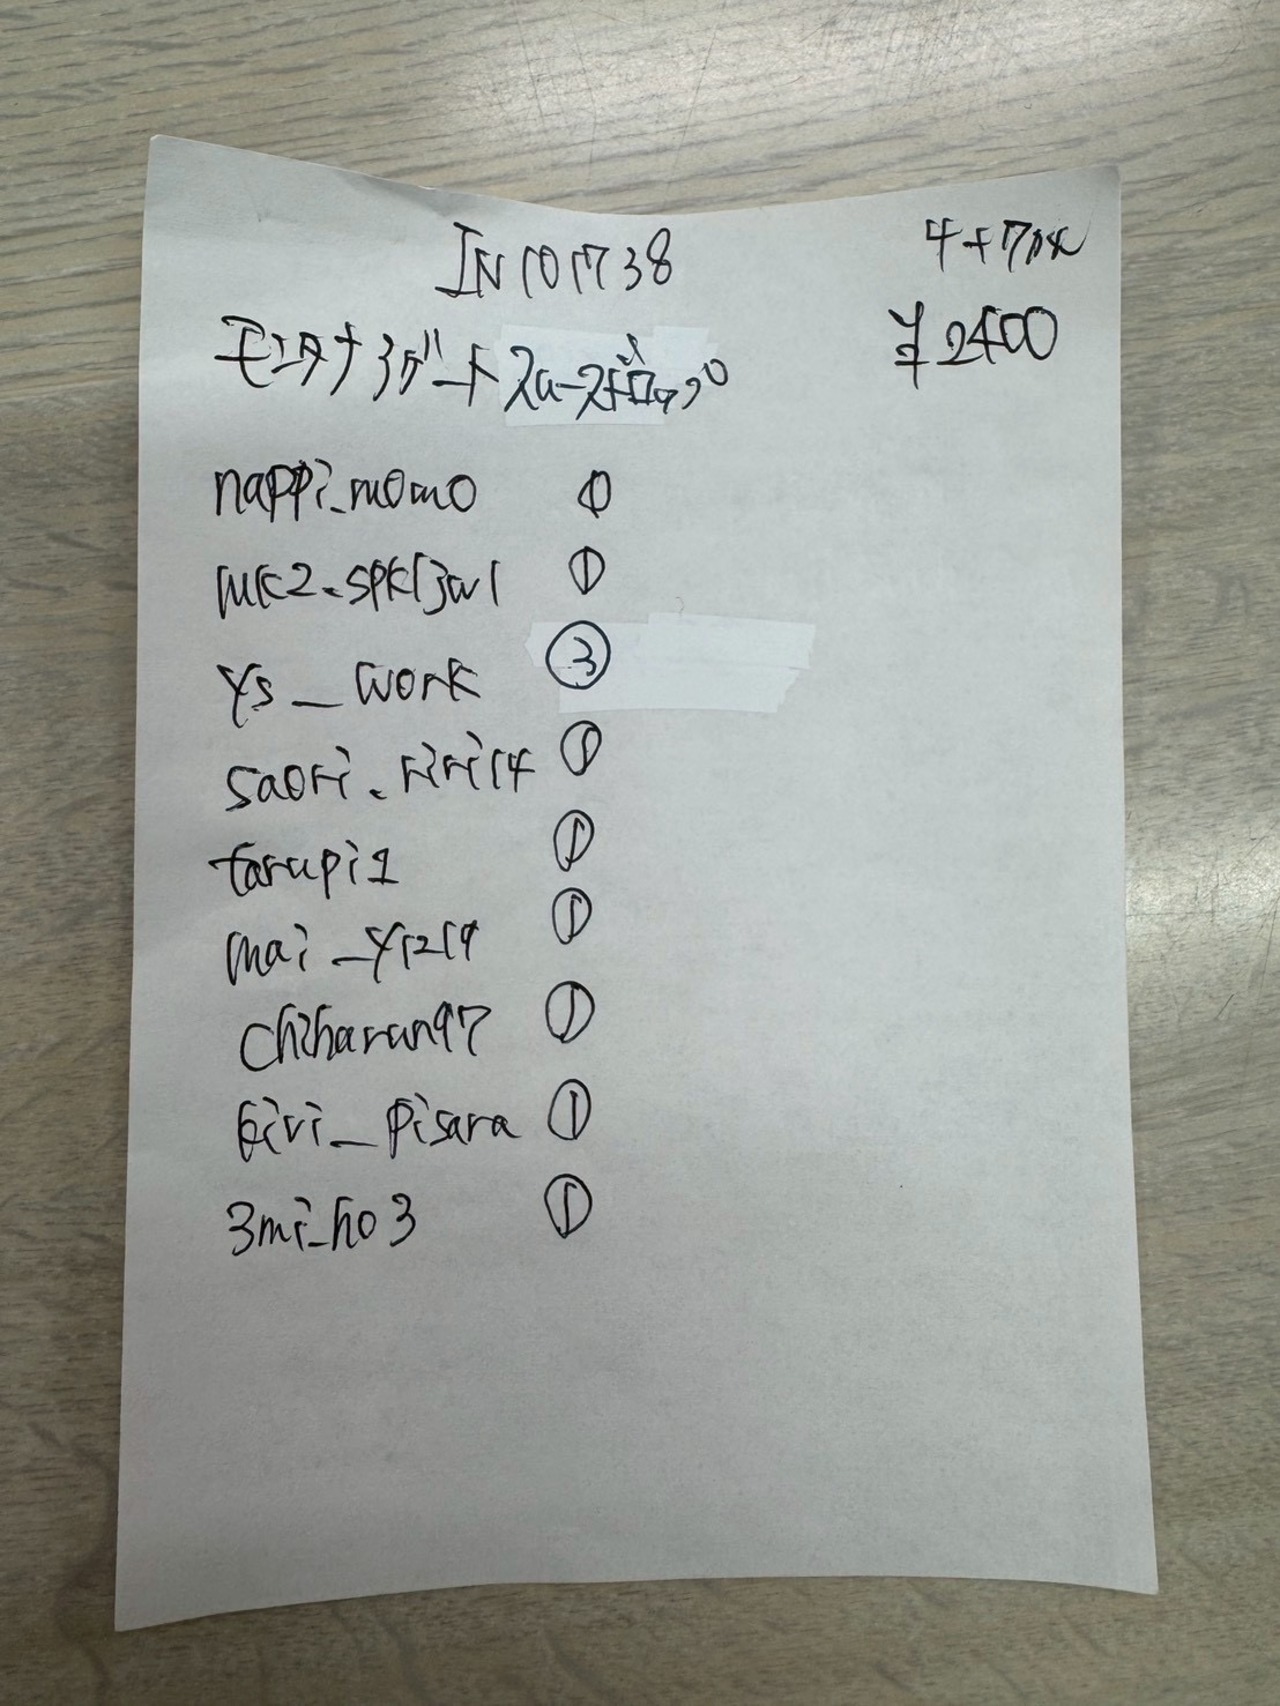 IN101738 4+7pk
モンタナヨガート 2a-2
¥2400
nappi_momo ①
mk2.spk13w1 ①
ys_work ③
saori.riri14 ①
tarupi1 ①
mai_y1219 ①
chiharun97 ①
kiri_pisara ①
3mi_ho3 ①